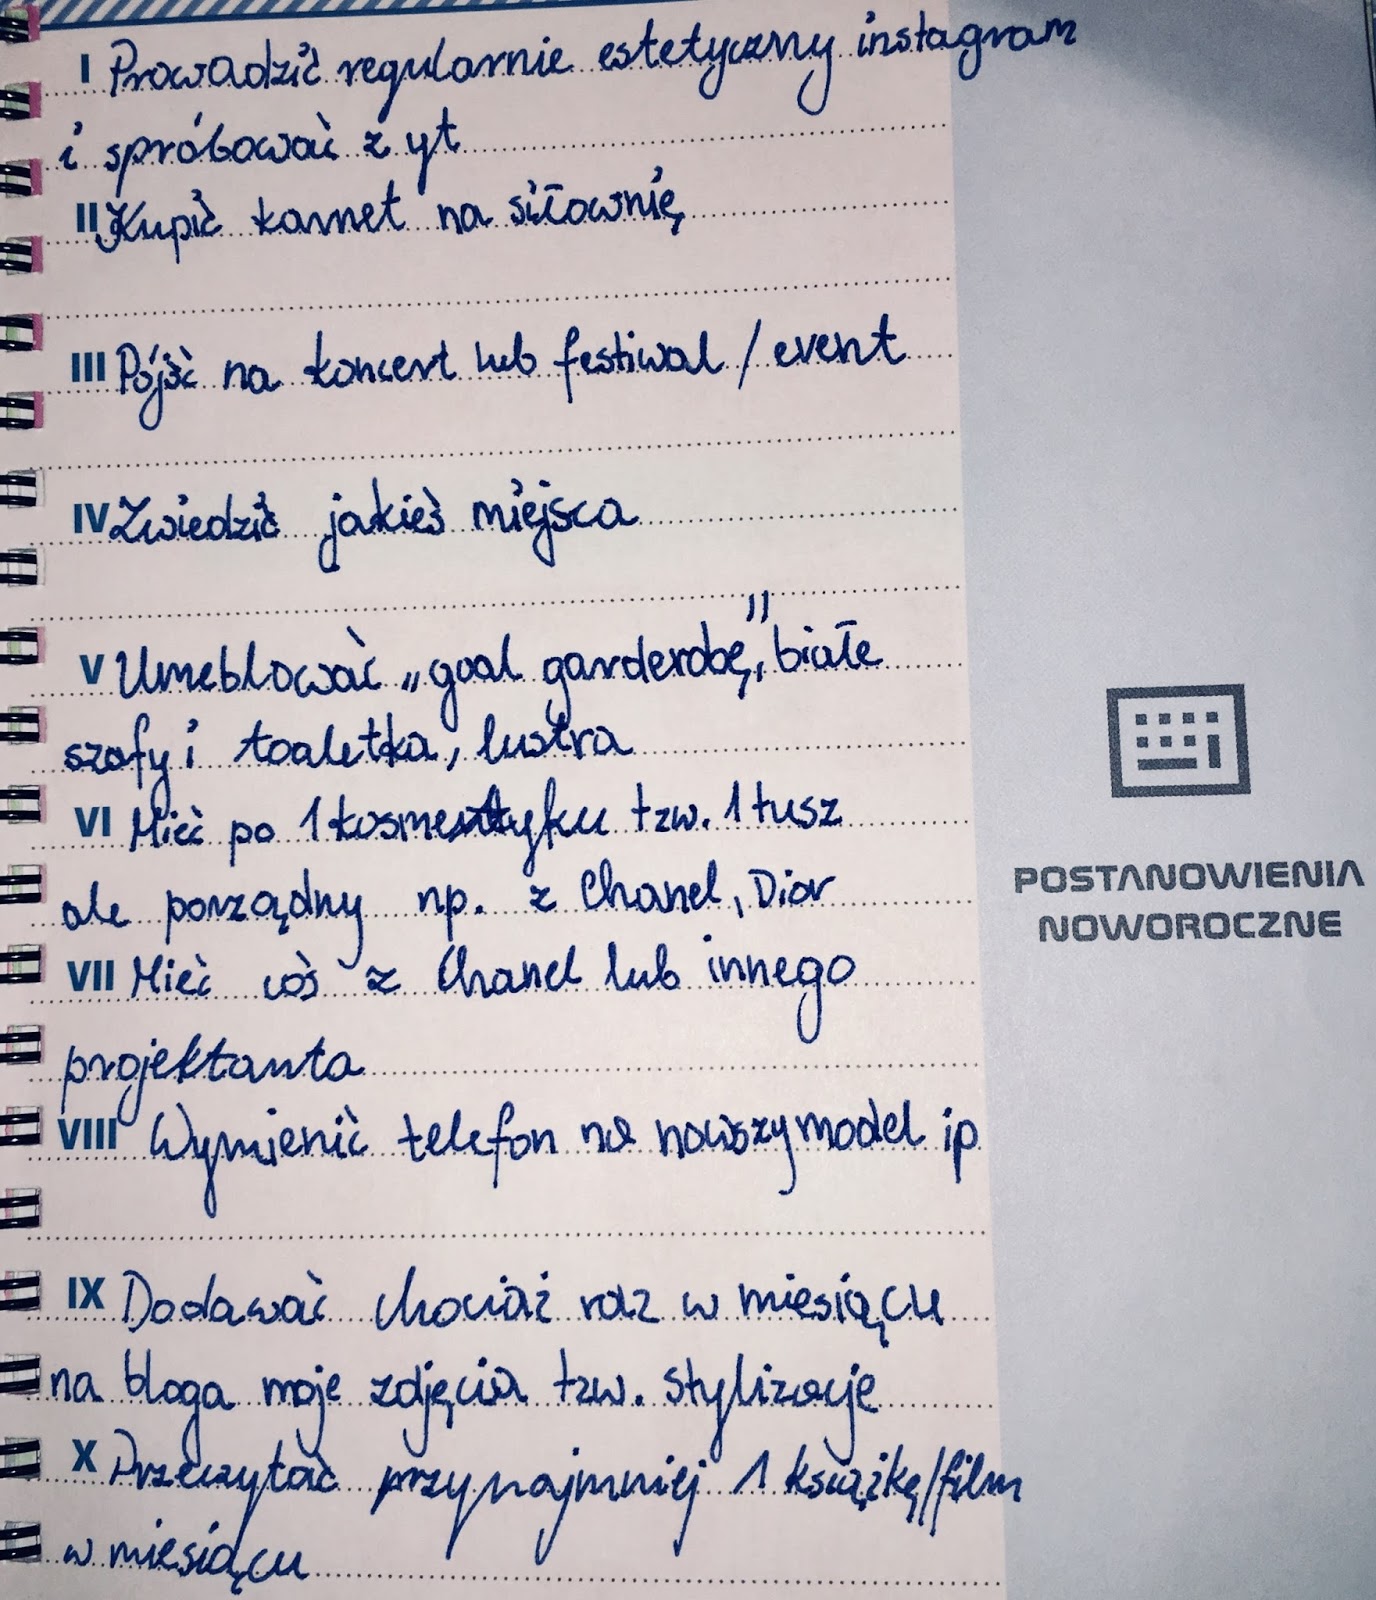 I Prowadzić regularnie estetyczny instagram
i spróbować z yt
II Kupić karnet na siłownię
III Pójść na koncert lub festiwal / event
IV Zwiedzić jakieś miejsca
V Umeblować „goal garderobę", białe
szafy i toaletka, lustra
VI Mieć po 1 kosmetyku tzw. 1 tusz
ale porządny np. z Chanel, Dior
VII Mieć coś z Chanel lub innego
projektanta
VIII Wymienić telefon na nowszy model ip
IX Dodawać chociaż raz w miesiącu
na bloga moje zdjęcia tzw. stylizacje
X Przeczytać przynajmniej 1 książkę/film
w miesiącu
POSTANOWIENIA
NOWOROCZNE